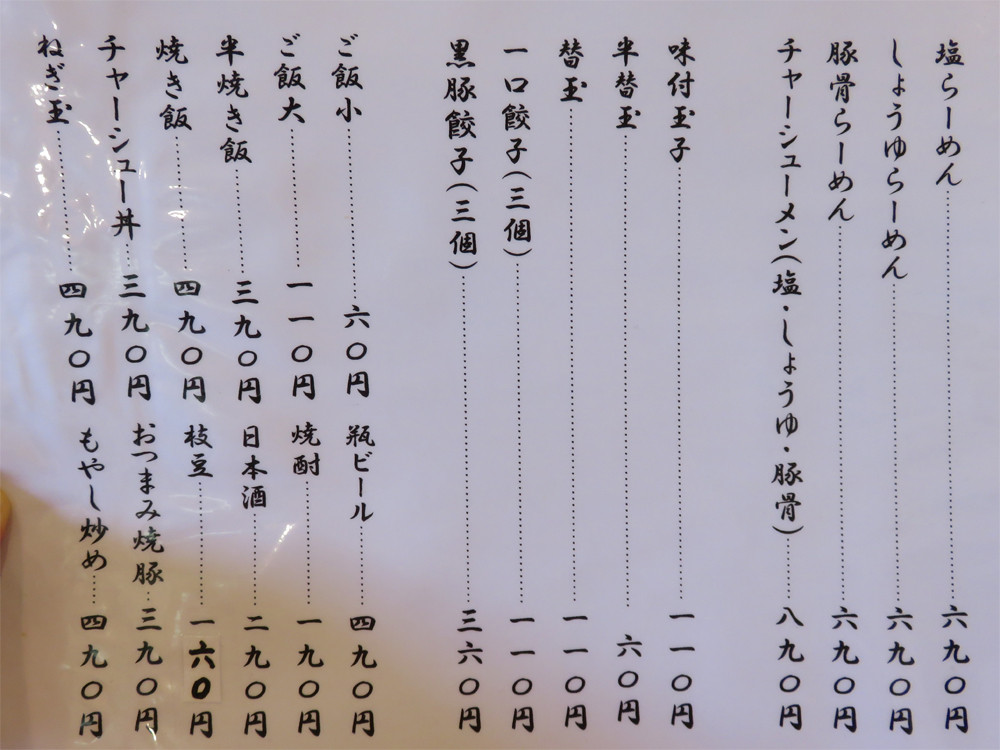 塩らーめん………六九〇円
しょうゆらーめん………六九〇円
豚骨らーめん………六九〇円
チャーシューメン(塩・しょうゆ・豚骨)………八九〇円
味付玉子………一一〇円
半替玉………六〇円
替玉………一一〇円
一口餃子(三個)………一一〇円
黒豚餃子(三個)………三六〇円
ご飯小………六〇円
ご飯大………一一〇円
半焼き飯………三九〇円
焼き飯………四九〇円
チャーシュー丼…三九〇円
ねぎ玉………四九〇円
瓶ビール………四九〇円
焼酎………一九〇円
日本酒………二九〇円
枝豆………一六〇円
おつまみ焼豚…三九〇円
もやし炒め…四九〇円